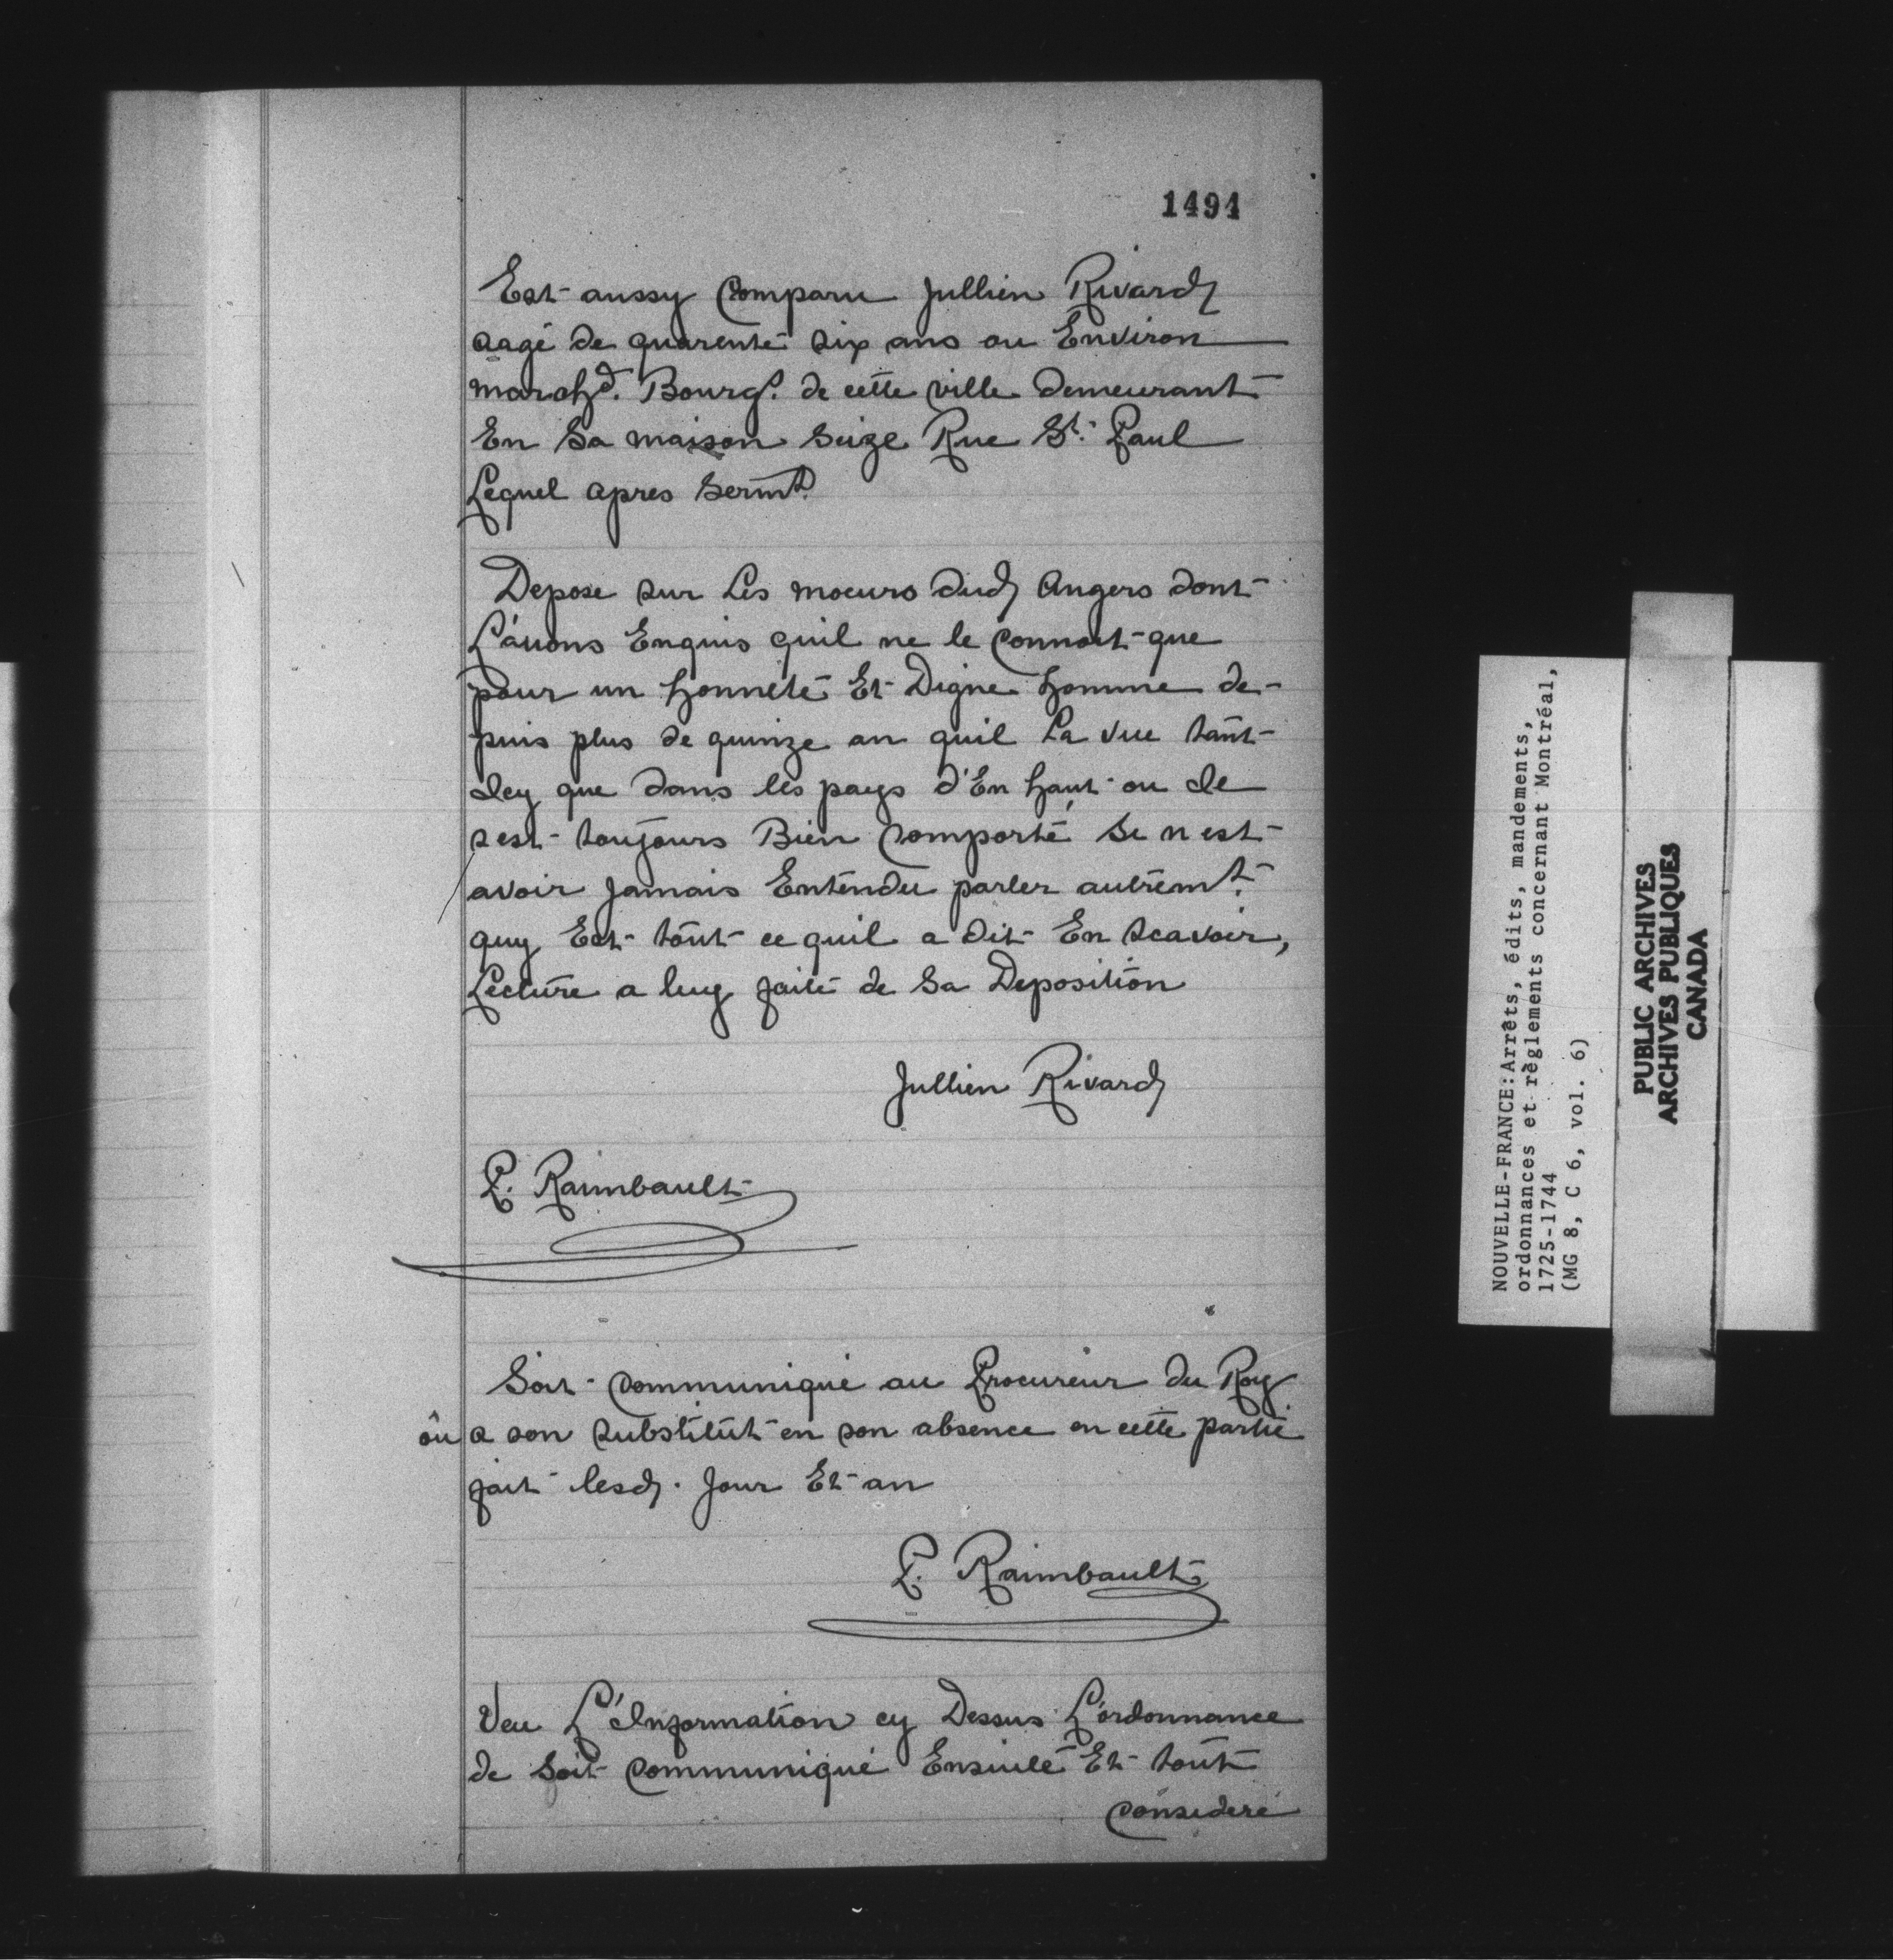 1491
Est aussy Comparu Jullien Rivard
aagé de quarente six ans ou Environ
march^d. Bourg^s. de cette ville demeurant
En Sa maison Seize Rue S^t. Paul
Lequel apres Serm^t.
Depose sur Les moeurs dud Angers dont
L'auons Enquis quil ne le Connoit que
pour un honnete Et Digne homme de-
puis plus de quinze an quil La vue tant
Icy que dans les pays d'En haut ou Il
sest toujours Bien Comporté Se n est
avoir Jamais Entendu parler autrem^t.
quy Est tout ce quil a Dit En Scavoir,
Lecture a luy faite de Sa Deposition
Jullien Rivard
P. Raimbault
Soit Communiqué au Procureur du Roy
ou a son substitut en son absence en cette partie
fait lesd. Jour Et an
P. Raimbault
Veu L'Information cy Dessus L'ordonnance
de Soit Communiqué Ensuite Et tout
Consideré
NOUVELLE-FRANCE:Arrêts, édits, mandements,
ordonnances et règlements concernant Montréal,
1725-1744
(MG 8, C 6, vol. 6)
PUBLIC ARCHIVES
ARCHIVES PUBLIQUES
CANADA